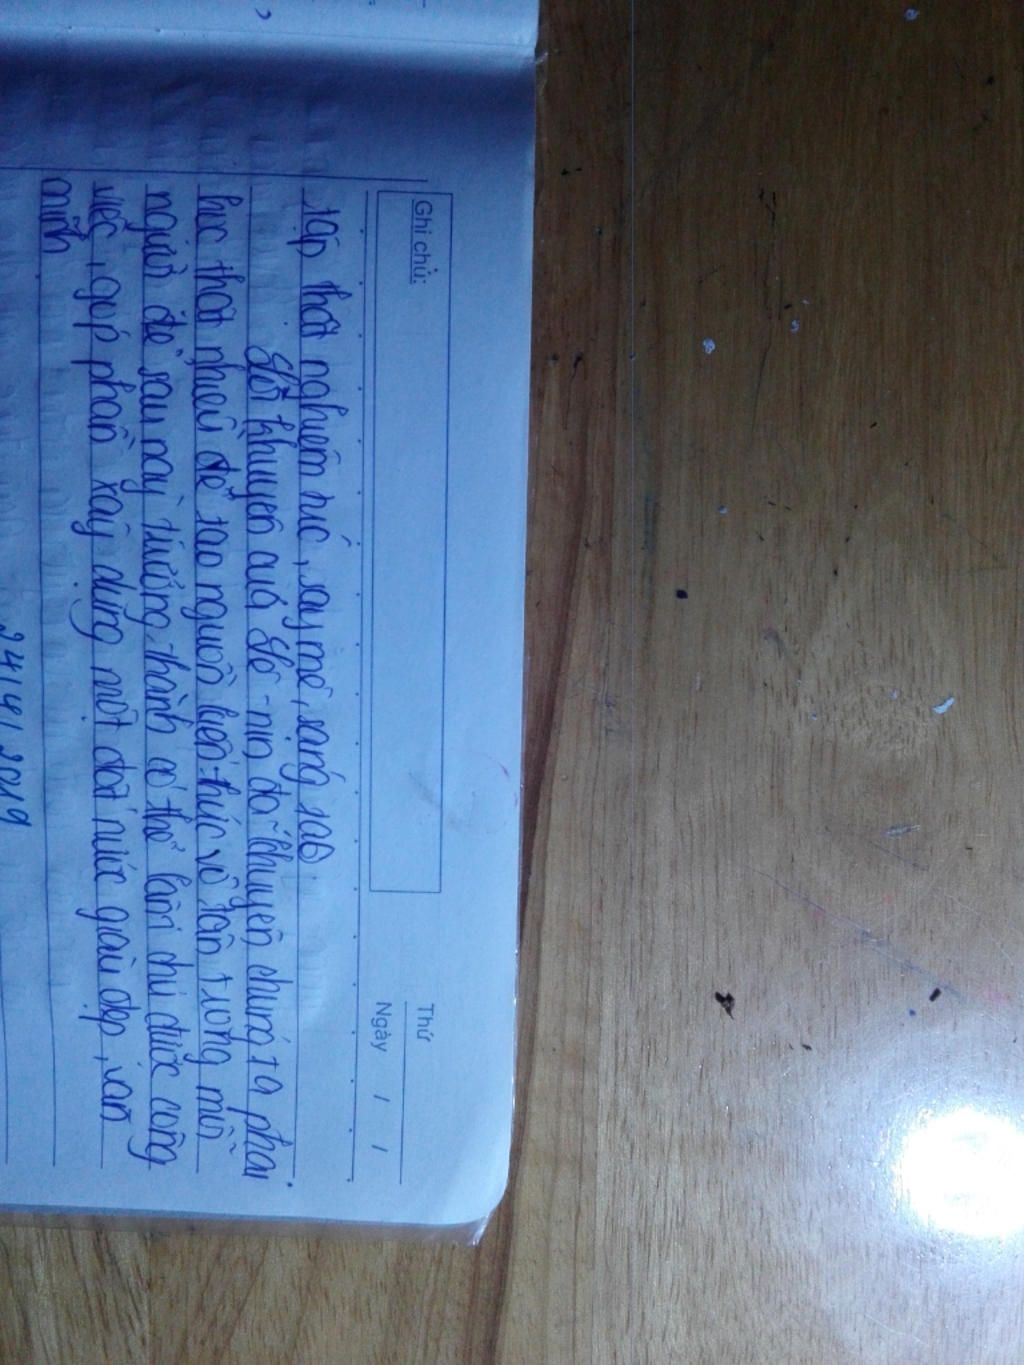 Ghi chú:
Thứ
Ngày / /
tập thật nghiêm túc, say mê, sáng tạo
Lời khuyên của Lê-nin đã khuyên chúng ta phải
học thật nhiều để tạo nguồn kiến thức vô tận trong mỗi
người để sau này trưởng thành có thể làm chủ được công
việc, góp phần xây dựng một đất nước giàu đẹp, văn
minh